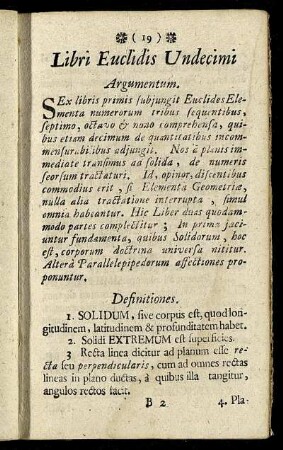 ( 19 )
Libri Euclidis Undecimi
Argumentum.
SEx libris primis subjungit Euclides Ele-
menta numerorum tribus sequentibus,
septimo, octavo & nono comprehensa, qui-
bus etiam decimum de quantitatibus incom-
mensurabilibus adjungit. Nos à planis im-
mediate transimus ad solida, de numeris
seorsum tractaturi. Id, opinor, discentibus
commodius erit, si Elementa Geometriæ,
nulla alia tractatione interrupta, simul
omnia habeantur. Hic Liber duas quodam-
modo partes complectitur; In prima jaci-
untur fundamenta, quibus Solidorum, hoc
est, corporum doctrina universa nititur.
Altera Parallelepipedorum affectiones pro-
ponuntur.
Definitiones.
1. SOLIDUM, sive corpus est, quod lon-
gitudinem, latitudinem & profunditatem habet.
2. Solidi EXTREMUM est superficies.
3 Recta linea dicitur ad planum esse re-
cta seu perpendicularis, cum ad omnes rectas
lineas in plano ductas, à quibus illa tangitur,
angulos rectos facit.
B 2
4. Pla-